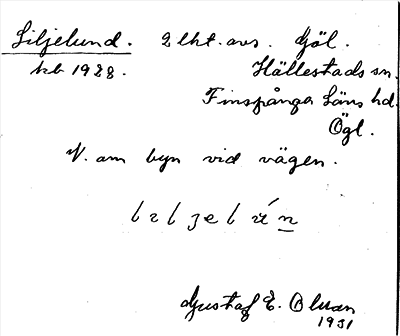 Liljelund. 2 lht. avs. Gjöl.
kb 1928. Hällestads sn.
Finspånga Läns hd.
Ögl.
N. om byn vid vägen.
Gustaf E. Olsson
1931